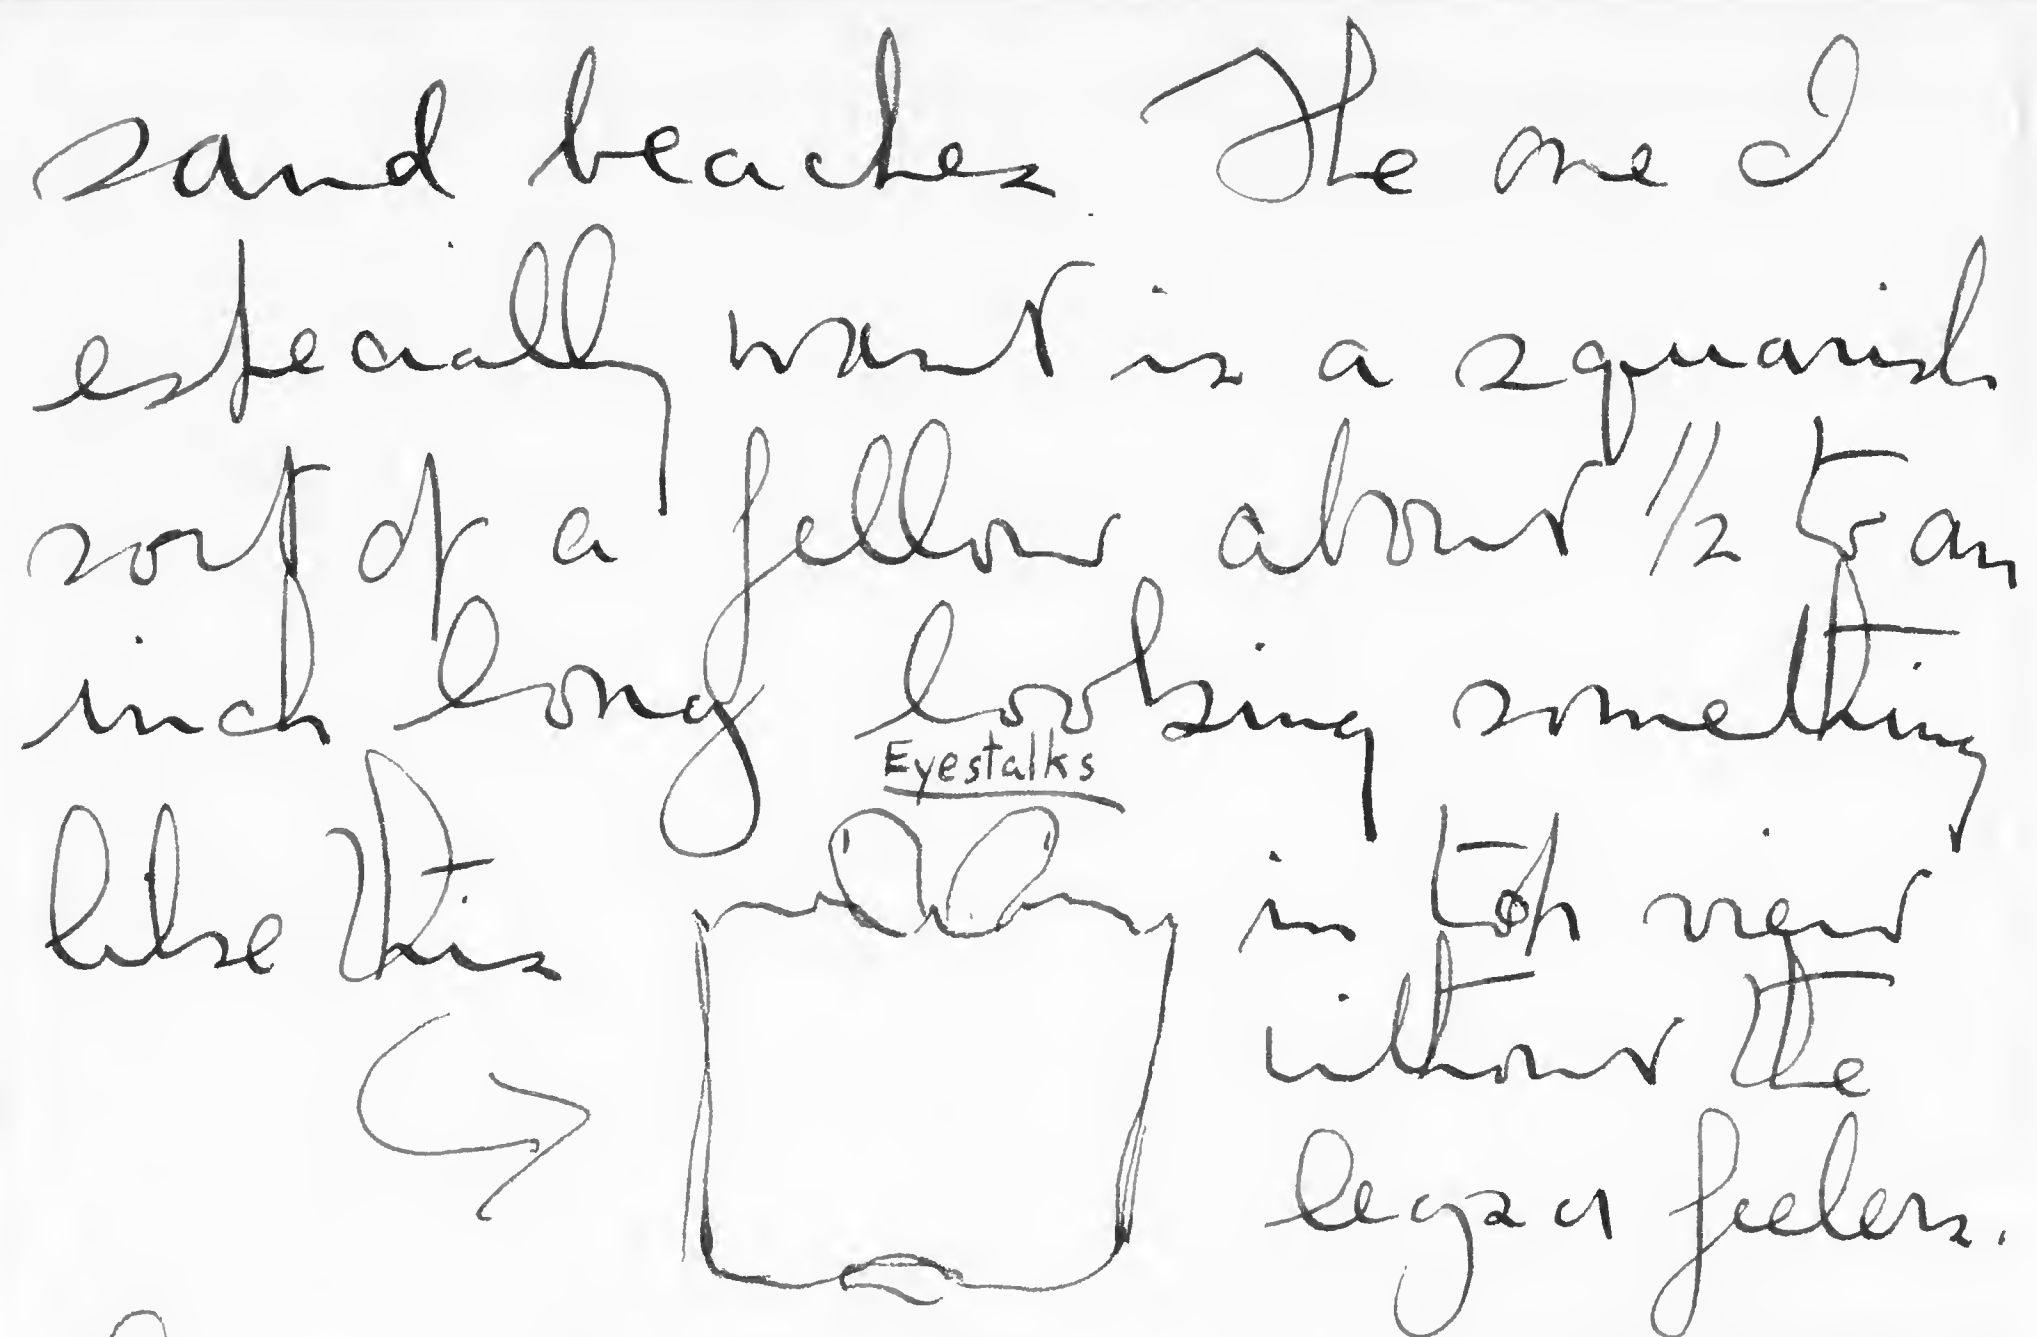 sand beaches. The one I
especially want is a squarish
sort of a fellow about 1/2 to an
inch long looking something
Eyestalks
like this in top view
without the
legs or feelers.